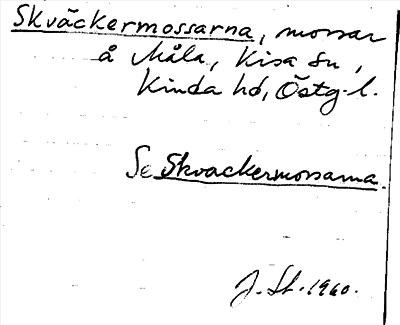 Skväckermossarna, mossar
å Måla, Kisa sn,
Kinda hd, Östg. l.
Se Skvackermossarna.
J. St. 1960.